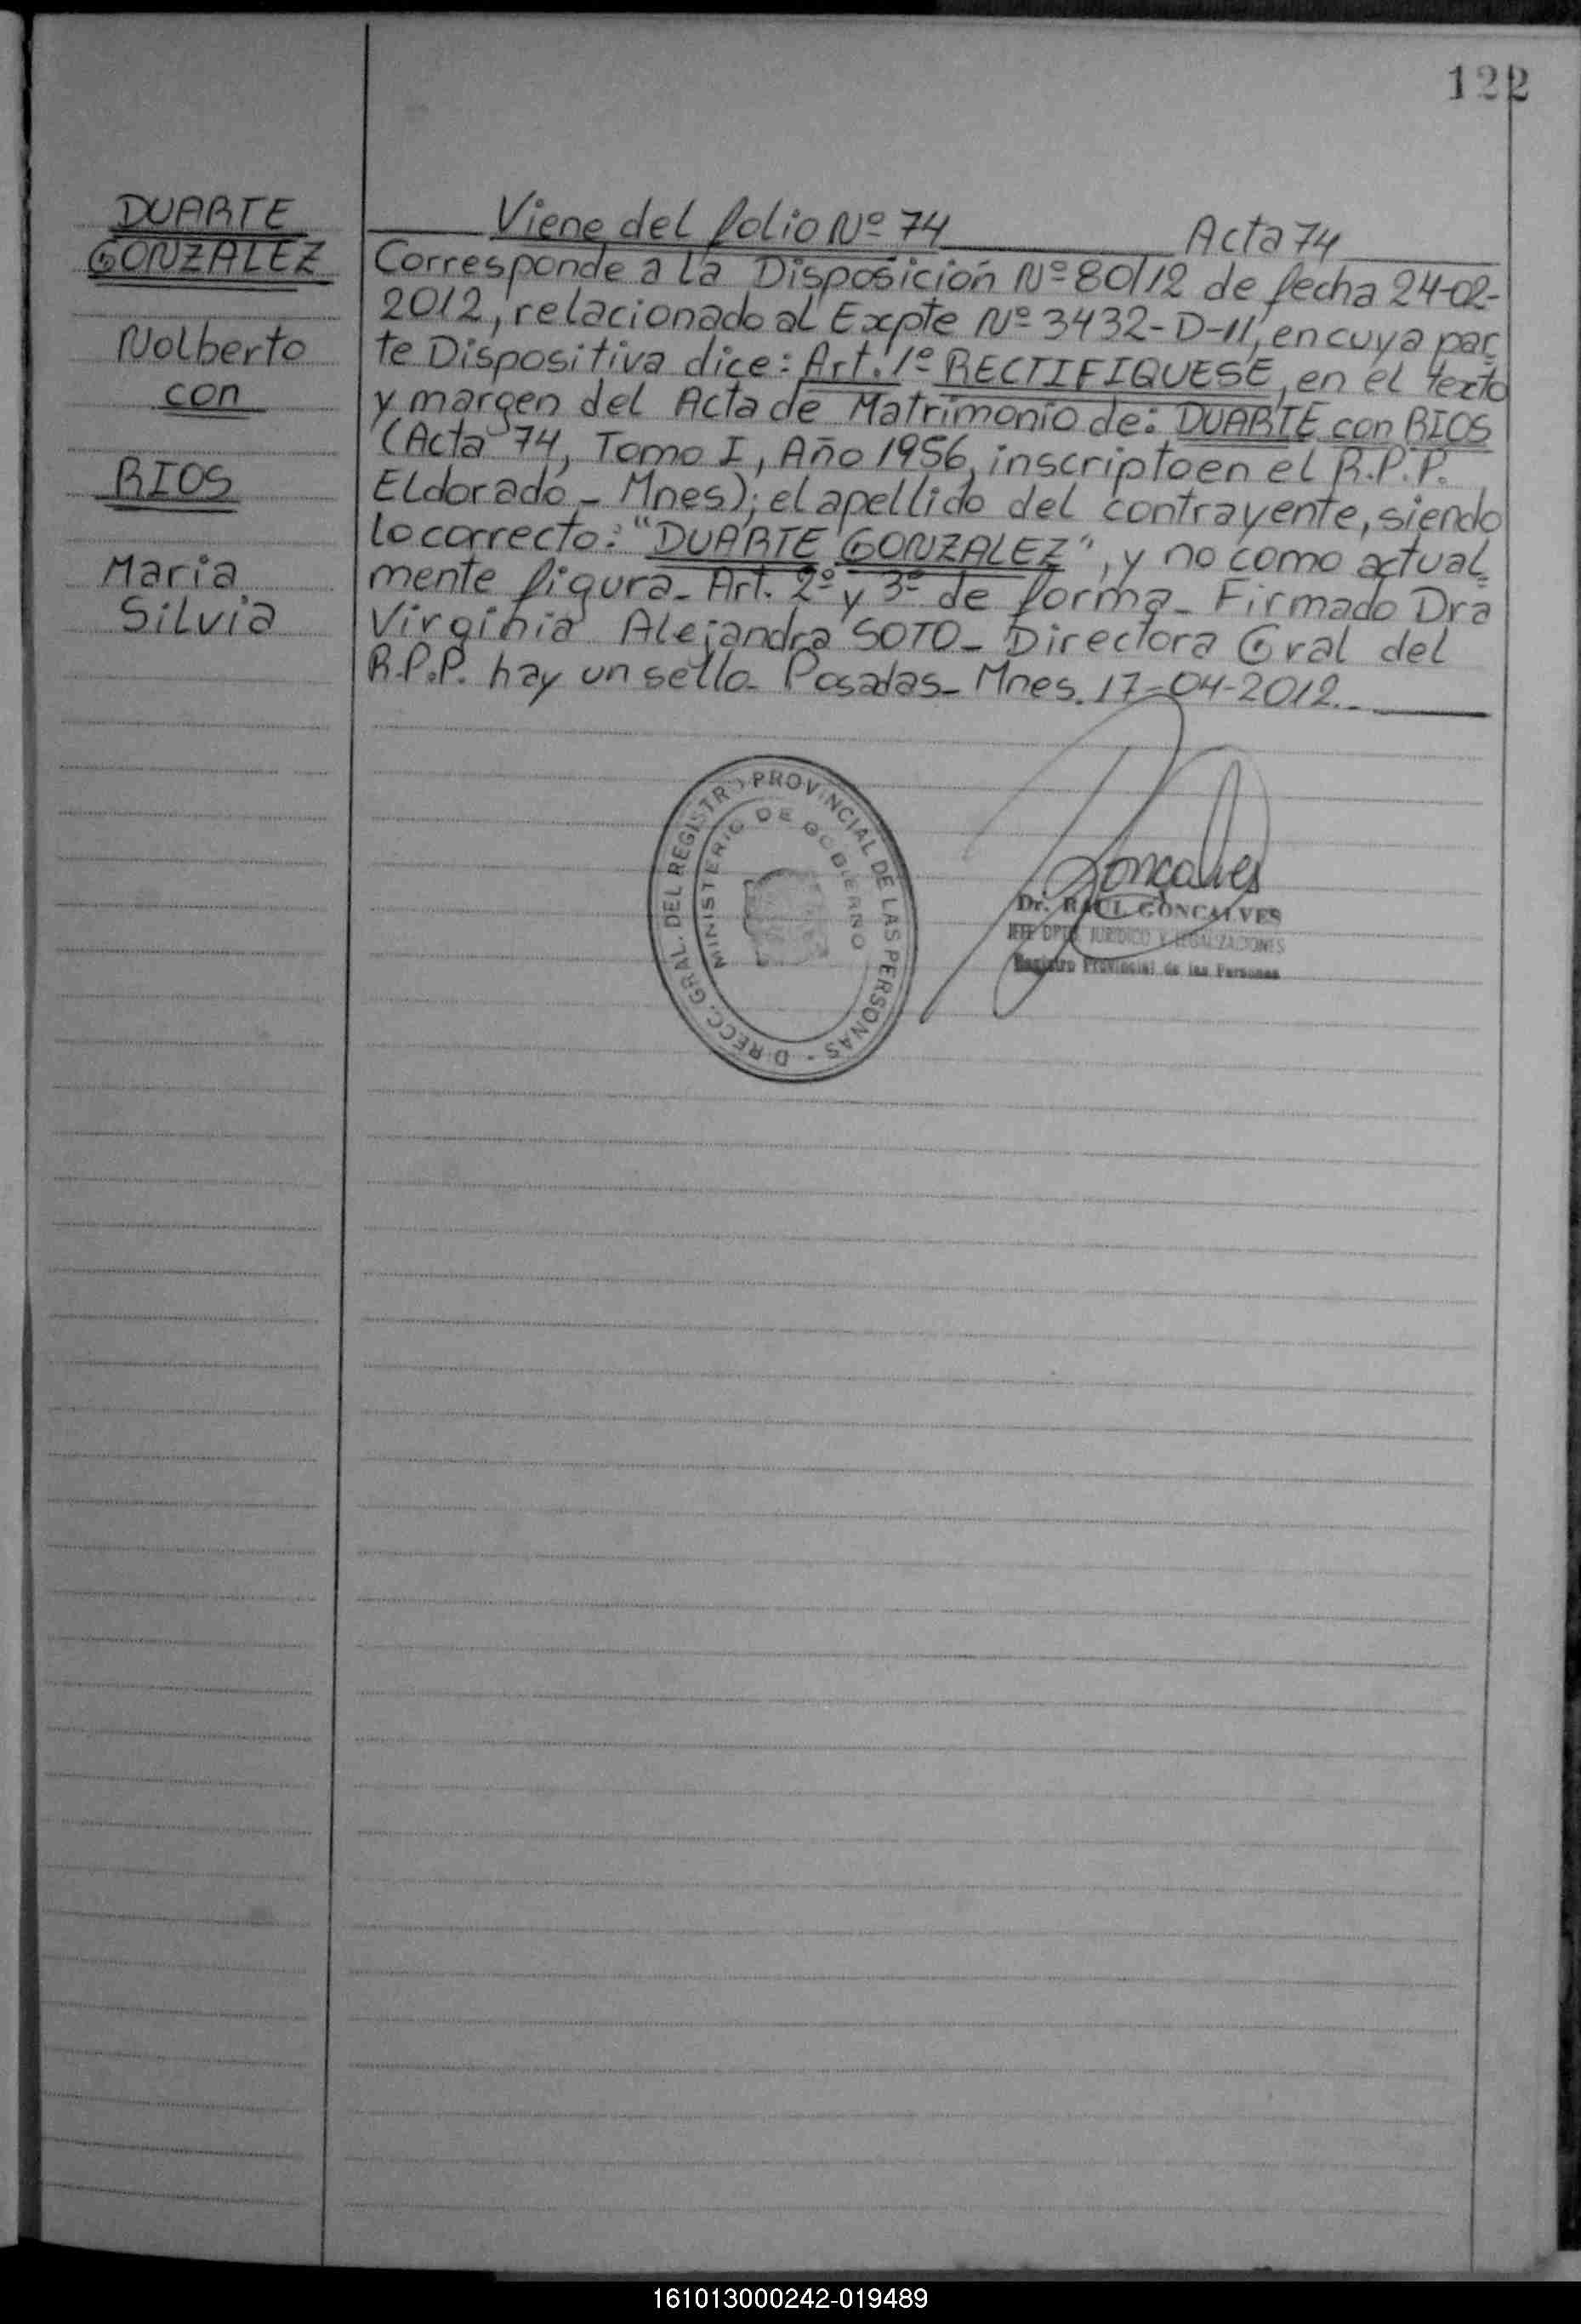 122
DUARTE
GONZALEZ
Nolberto
con
RIOS
Maria
Silvia
Viene del folio Nº 74 Acta 74
Corresponde a la Disposición Nº 80/12 de fecha 24-02-
2012, relacionado al Expte Nº 3432-D-11, en cuya par
te Dispositiva dice: Art. 1º RECTIFIQUESE, en el texto
y margen del Acta de Matrimonio de: DUARTE con RIOS
(Acta 74, Tomo I, Año 1956, inscripto en el R.P.P.
Eldorado - Mnes); el apellido del contrayente, siendo
lo correcto: "DUARTE GONZALEZ", y no como actual
mente figura. Art. 2º y 3º de forma. Firmado Dra
Virginia Alejandra SOTO - Directora Gral del
R.P.P. hay un sello. Posadas - Mnes. 17-04-2012.
DIRECC. GRAL. DEL REGISTRO PROVINCIAL DE LAS PERSONAS
MINISTERIO DE GOBIERNO
Gonçalves
Dr. RAUL GONCALVES
JEFE DPTO. JURIDICO Y LEGALIZACIONES
Registro Provincial de las Personas
161013000242-019489